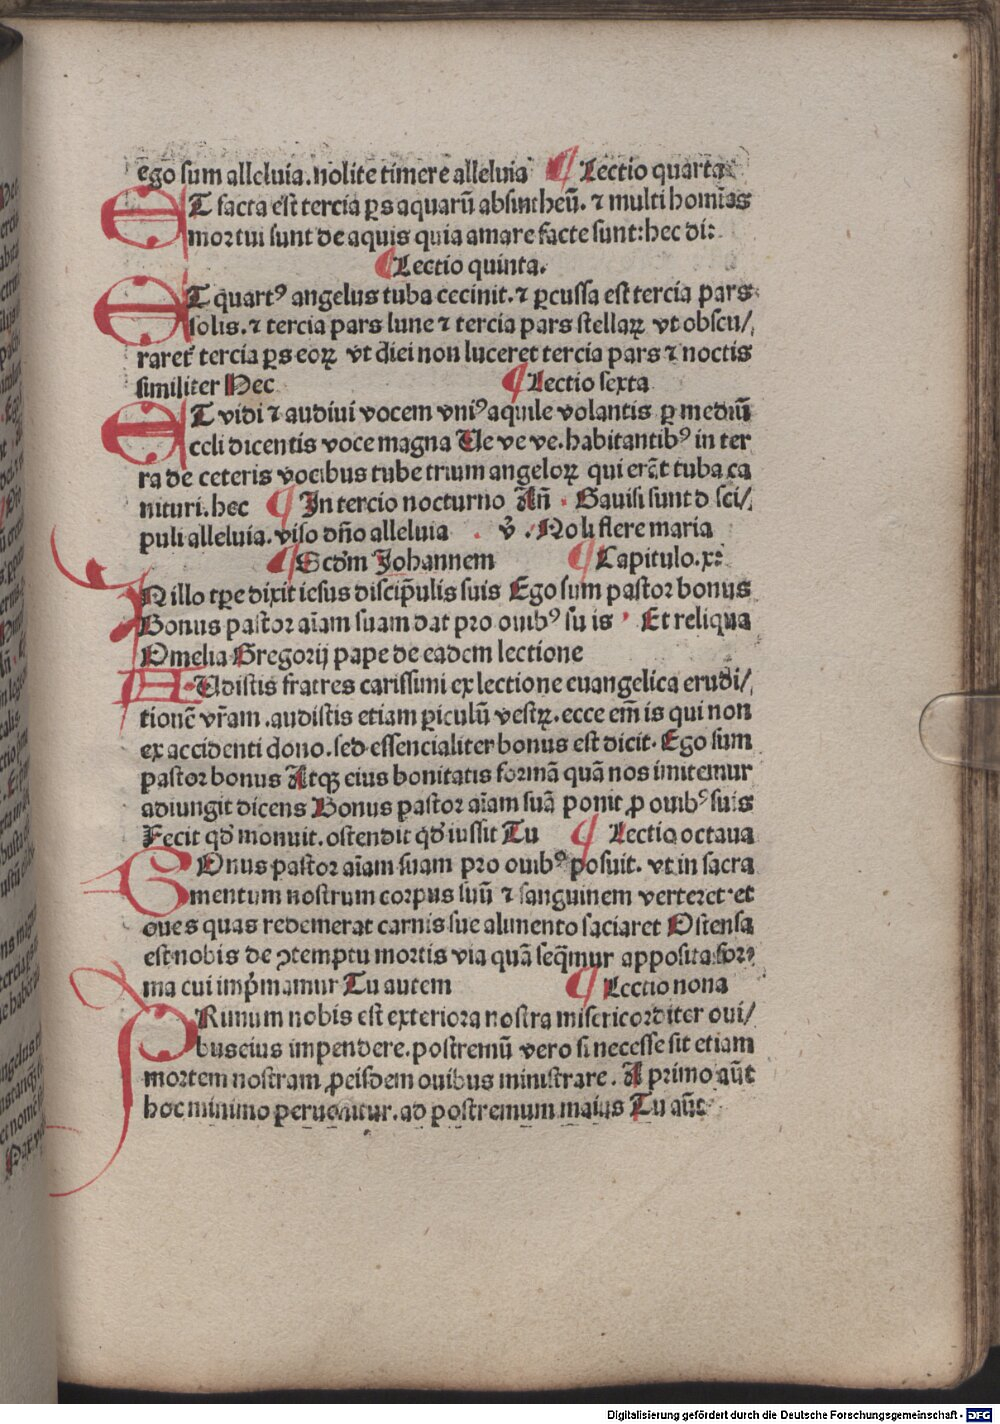 ego sum alleluia. nolite timere alleluia ¶ Lectio quarta
ET facta est tercia ꝑs aquarū absintheū. ⁊ multi homīes
mortui sunt de aquis quia amare facte sunt: hec di:
¶ Lectio quinta.
ET quartꝰ angelus tuba cecinit. ⁊ ꝑcussa est tercia pars
solis. ⁊ tercia pars lune ⁊ tercia pars stellaꝝ vt obscu/
rarēt tercia ꝑs eoꝝ vt diei non luceret tercia pars ⁊ noctis
similiter Hec ¶ Lectio sexta
ET vidi ⁊ audiui vocem vniꝰ aquile volantis ꝑ mediū
celi dicentis voce magna Ue ve ve. habitantibꝰ in ter
ra de ceteris vocibus tube trium angeloꝝ qui erāt tuba ca
nituri. hec ¶ In tercio nocturno Añ. Gauisi sunt d sci/
puli alleluia. viso dño alleluia . v̉. Noli flere maria
¶ Scd̄m Johannem ¶ Capitulo. x:
IN illo tꝑe dixit iesus discip̄ulis suis Ego sum pastor bonus
Bonus pastor aīam suam dat pro ouibꝰ su is · Et reliqua
Omelia Gregorij pape de eadem lectione
AUdistis fratres carissimi ex lectione euangelica erudi/
tionē vr̄am. audistis etiam ꝑiculū vestꝝ. ecce em̄ is qui non
ex accidenti dono. sed essencialiter bonus est dicit. Ego sum
pastor bonus Atqꝫ eius bonitatis formā quā nos imitemur
adiungit dicens Bonus pastor aīam suā ponit ꝓ ouibꝰ suis
Fecit qd̄ monuit. ostendit qd̄ iussit Tu ¶ Lectio octaua
BOnus pastor aīam suam pro ouibꝰ posuit. vt in sacra
mentum nostrum corpus suū ⁊ sanguinem verteret. et
oues quas redemerat carnis sue alimento saciaret Ostensa
est nobis de ꝯtemptu mortis via quā seq̄mur apposita for
ma cui imp̄mamur Tu autem ¶ Lectio nona
PRimum nobis est exteriora nostra misericorditer oui/
bus eius impendere. postremū vero si necesse sit etiam
mortem nostram ꝓ eisdem ouibus ministrare. A primo aūt
hoc minimo peruenitur. ad postremum maius Tu aūt
Digitalisierung gefördert durch die Deutsche Forschungsgemeinschaft - DFG